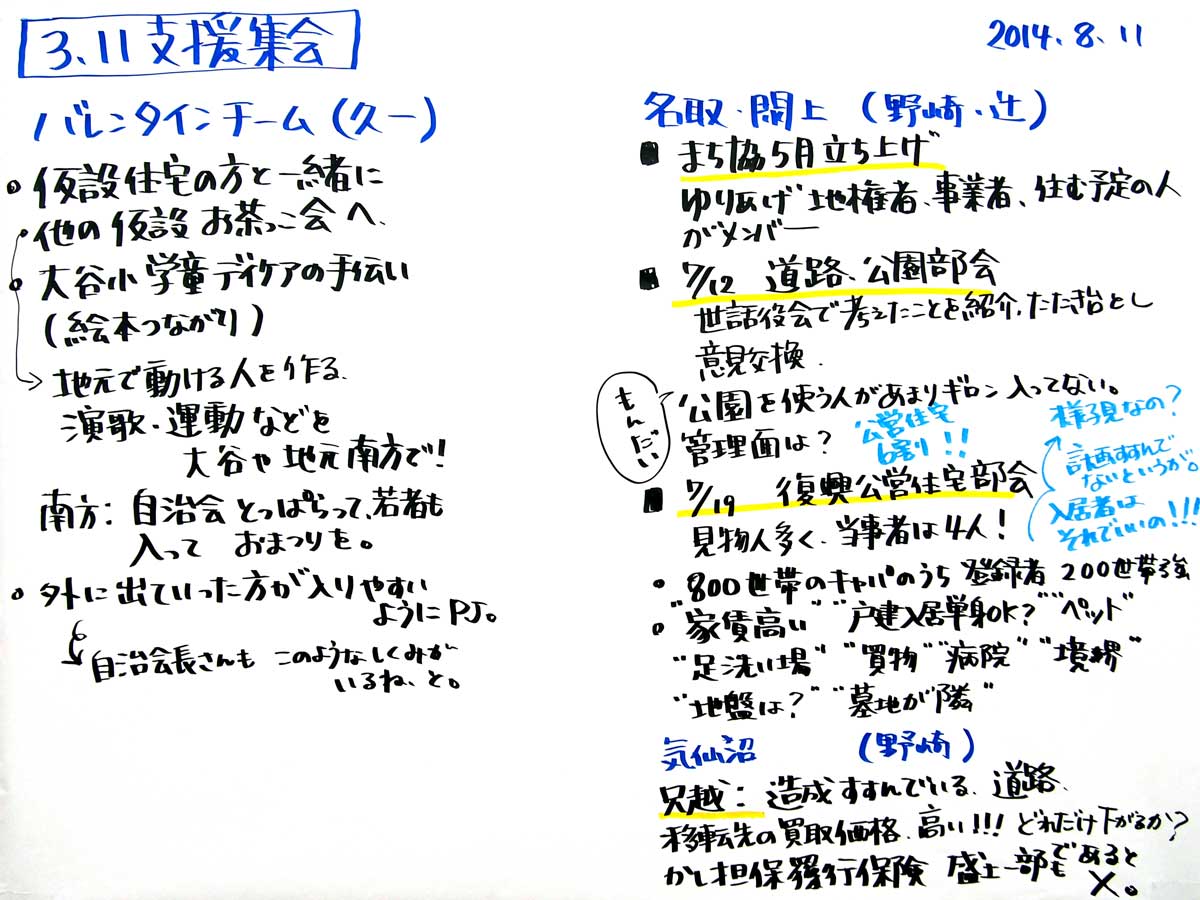 3.11支援集会
2014.8.11
バレンタインチーム(久一)
・仮設住宅の方と一緒に
・他の仮設 お茶っこ会へ、
・大谷小学童デイケアの手伝い
(絵本つながり)
→地元で動ける人を作る、
演歌・運動などを
大谷や地元南方で!
南方:自治会とっぱらって、若者も
入って おまつりを。
・外に出ていった方が入りやすい
ようにPJ。
→自治会長さんも このようなしくみが
いるね、と。
名取・閖上 (野崎・辻)
■ まち協5月立ち上げ
ゆりあげ 地権者、事業者、住む予定の人
がメンバー
■ 7/12 道路、公園部会
世話役会で考えたことを紹介、たたき台とし
意見交換、
もんだい
公園を使う人があまりギロン入ってない。
管理面は?
公営住宅
6割り!!
様子見なの?
計画すすんで
ないというが。
入居者は
それでいいの!!!
■ 7/19 復興公営住宅部会
見物人多く、当事者は4人!
・800世帯のキャパのうち 登録者 200世帯強
・"家賃高い" "戸建入居単身OK?" "ペット"
"足洗い場" "買物" "病院" "境界"
"地盤は?" "墓地が隣"
気仙沼 (野崎)
只越: 造成すすんでいる、道路、
移転先の買取価格、高い!!! どれだけ下がるか?
かし担保履行保険 盛土一部でもあると
×。